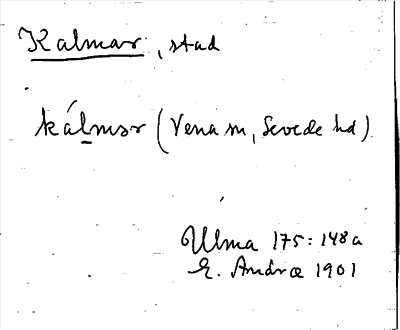 Kalmar, stad
kálmər (Vena m, Sevede hd)
Ulma 175:148a
E. Andræ 1901